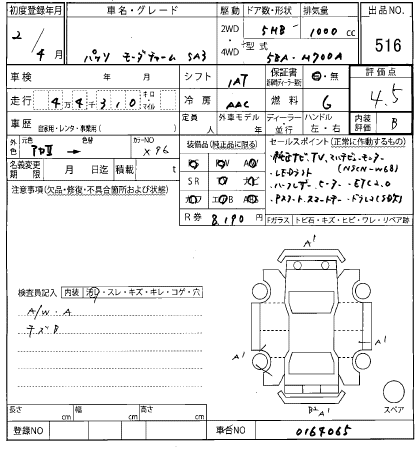 初度登録年月 車名・グレード 駆動 ドア数・形状 排気量 出品NO.
2/4月 パッソ モーダチャーム SA3 2WD 4WD 5HB 1000 cc 516
型式 5BA-M700A
車検 年 月 シフト IAT 保証書 有・無 評価点
走行 44310 キロ マイル 冷房 AAC 燃料 G 4.5
車歴 自家用・レンタ・事業用( ) 定員 人 外車モデル 年 ディーラー・並行 ハンドル 左・右 内装評価 B
外色 元色 色替 カラーNO X96
名義変更期限 月 日迄 積載 t
装備品(純正品に限る) セールスポイント(正常に作動するもの)
純正ナビ.TV.マルチビューモニター
(NSCN-W68)
・LEDライト
・ETC2.0
SR
注意事項(欠品・修復・不具合箇所および状態)
R券 8,190 円
Fガラス トビ石・キズ・ヒビ・ワレ・リペア跡
検査員記入 内装 汚レ・スレ・キズ・キレ・コゲ・穴
A/W.A
キズB
A1
A1
A1
A1
B2 A1
スペア
長さ cm 幅 cm 高さ cm
登録NO 車台NO 0164065